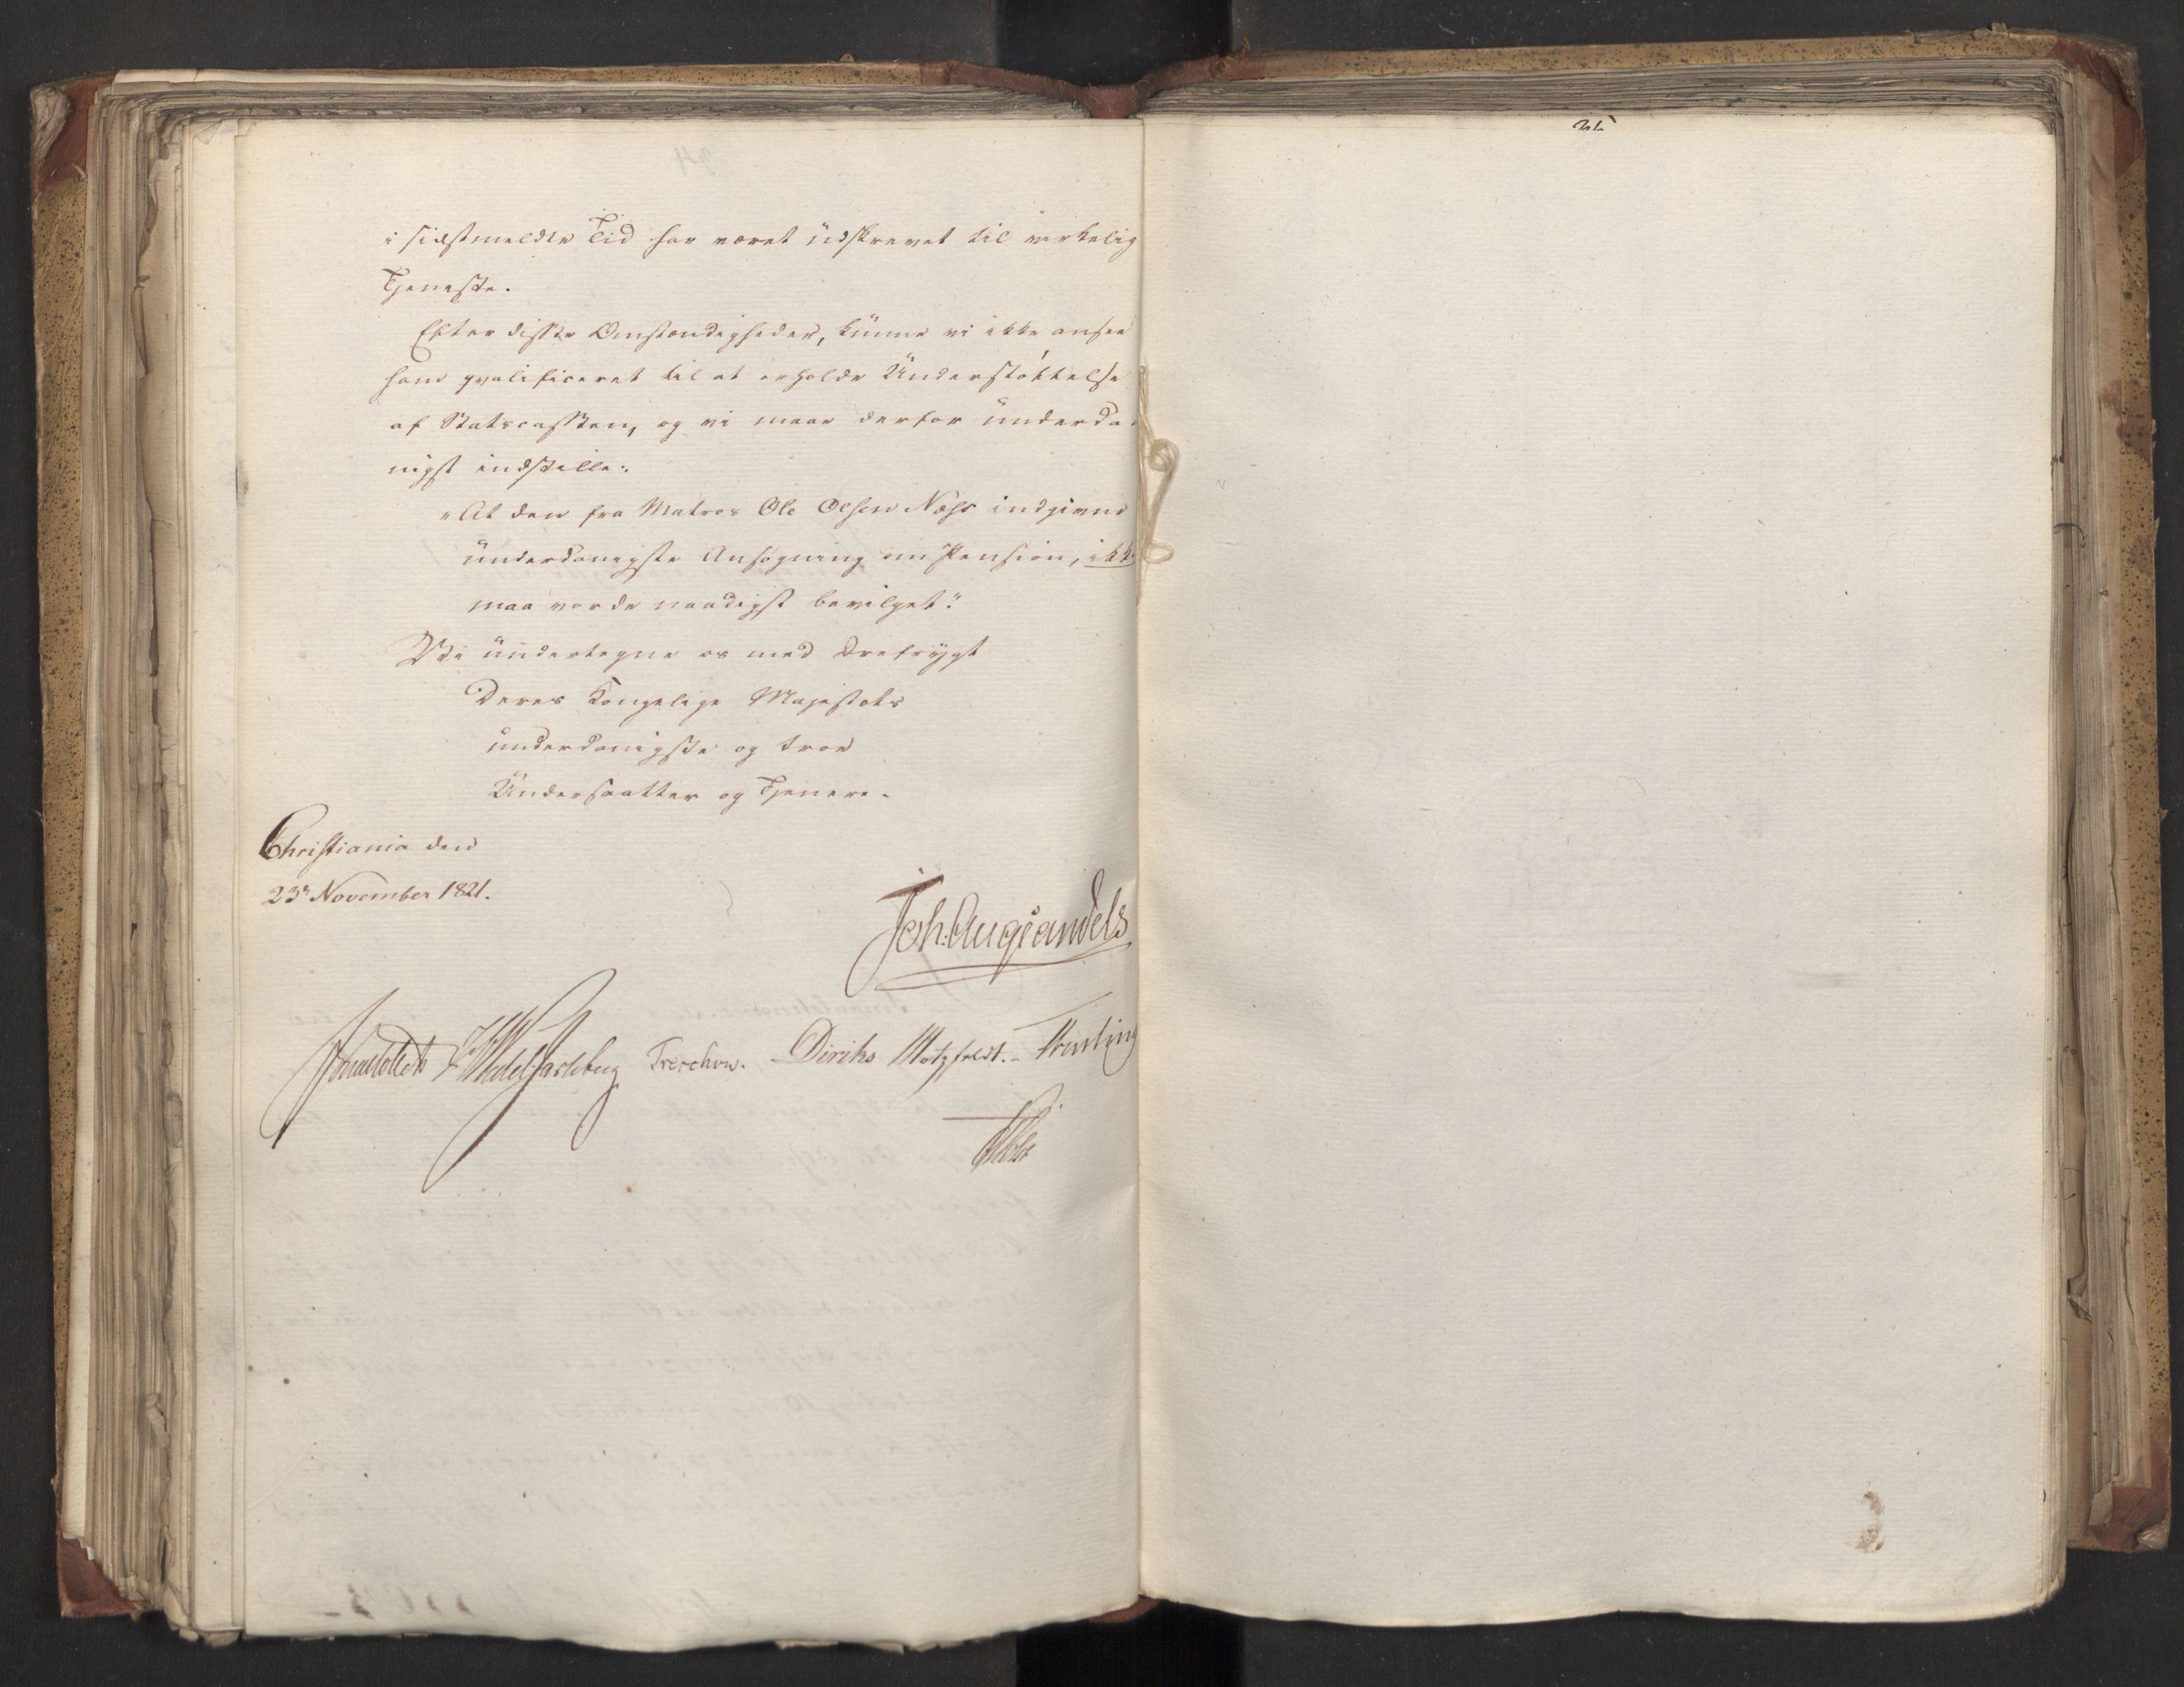 i sidstmeldte Tid har været üdskrevet til virkelig
Tjeneste.
Efter disse Omstændigheder, künne vi ikke ansee
ham qvalificeret til at erholde Ünderstøttelse
af Statscassen, og vi maae derfor ünderda-
nigst indstille:
"At den fra Matros Ole Olsen Næss indgivne
ünderdanigste Ansøgning om Pension, ikke
maa vorde naadigst bevilget."
Vi ündertegne os med Ærefrÿgt
Deres Kongelige Majestæts
ünderdanigste og troe
Ündersaatter og Tjenere.
Christiania den
23r November 1821.
Joh: Aug Sandels
JCollett HWedel Jarlsberg Treschow. Diriks Motzfeldt. Fasting
Holst
35